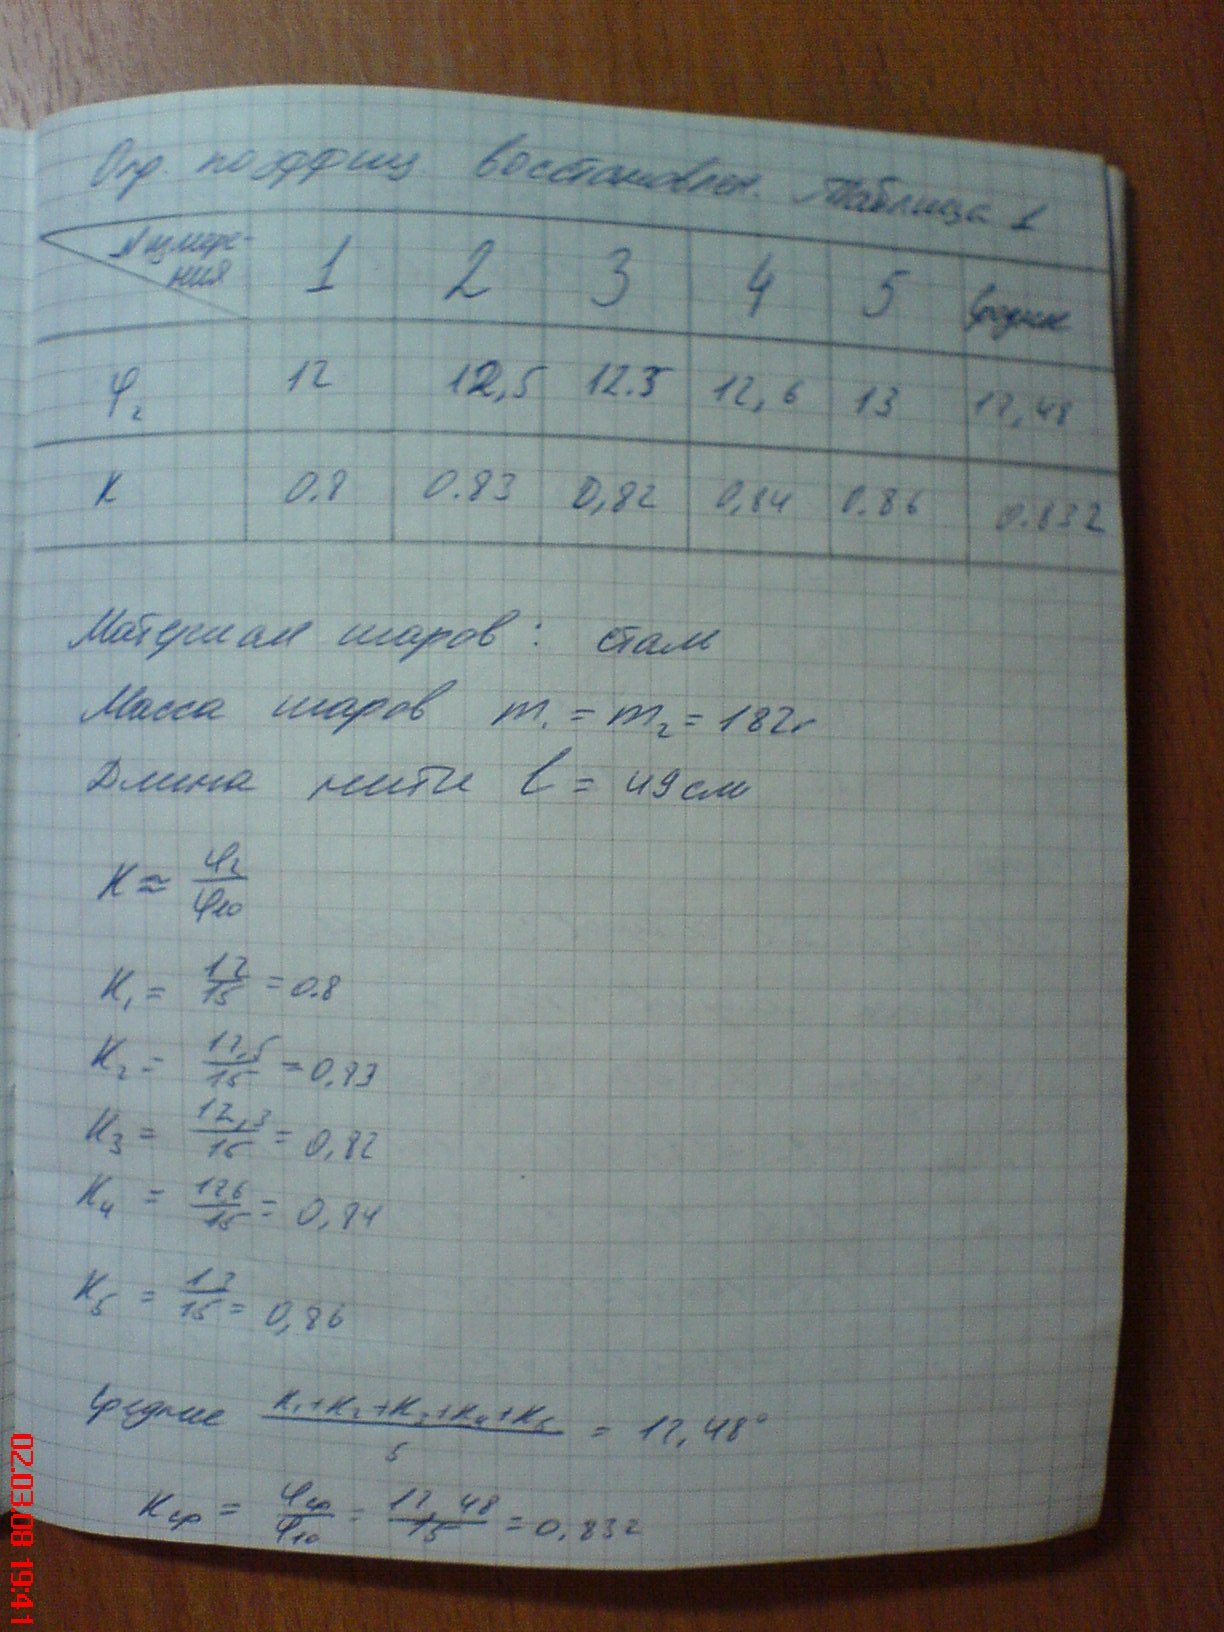 Опр. коэффиц восстановлен. Таблица 1
№ измере-
ния 1 2 3 4 5 Средн
φ₂ 12 12,5 12.3 12,6 13 12,48
K 0.8 0.83 0,82 0,84 0.86 0.832
Материал шаров: сталь
Масса шаров m₁ = m₂ = 182г
Длина нити l = 49 см
K ≈ φ₂/φ₁₀
K₁ = 12/15 = 0.8
K₂ = 12,5/15 = 0,83
K₃ = 12,3/15 = 0,82
K₄ = 12,6/15 = 0,84
K₅ = 13/15 = 0,86
Среднее K₁+K₂+K₃+K₄+K₅/5 = 12,48°
Kср = φср/φ₁₀ = 12,48/15 = 0,832
02.03.08 19:41